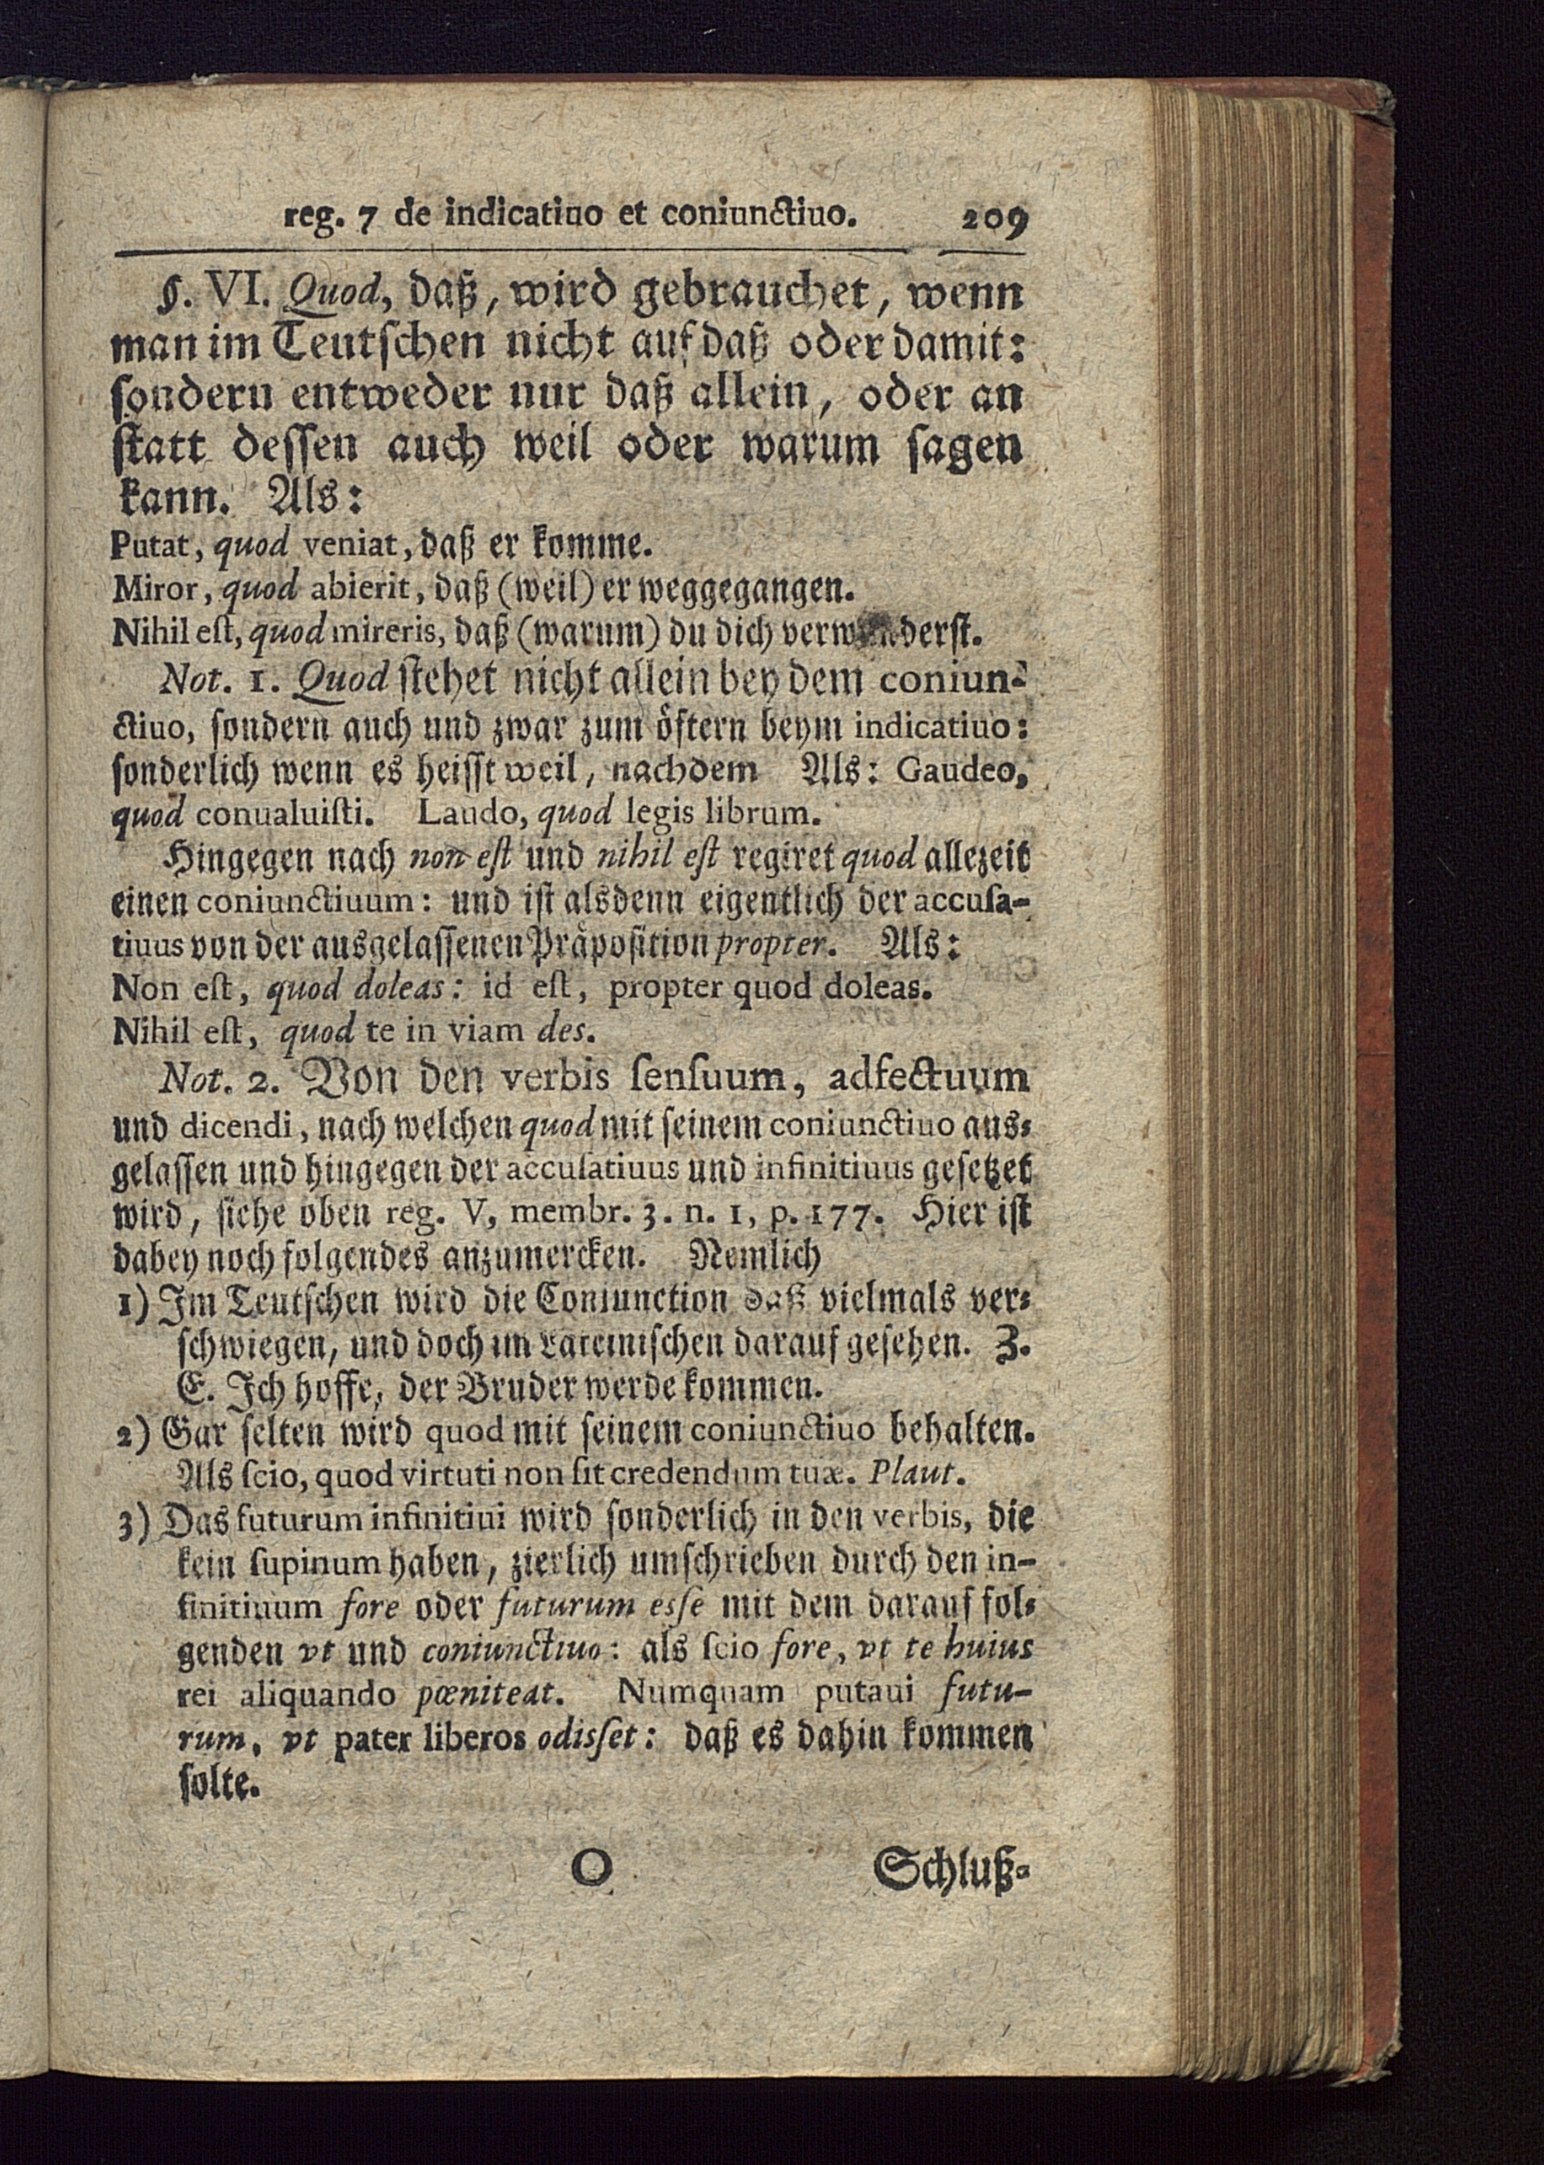 reg. 7 de indicatiuo et coniunctiuo. 209
§. VI. Quod, daß, wird gebrauchet, wenn
man im Teutschen nicht auf daß oder damit:
sondern entweder nur daß allein, oder an
statt dessen auch weil oder warum sagen
kann. Als:
Putat, quod veniat, daß er komme.
Miror, quod abierit, daß (weil) er weggegangen.
Nihil est, quod mireris, daß (warum) du dich verwunderst.
Not. 1. Quod stehet nicht allein bey dem coniun-
ctiuo, sondern auch und zwar zum öftern beym indicatiuo:
sonderlich wenn es heisst weil, nachdem Als: Gaudeo,
quod conualuisti. Laudo, quod legis librum.
Hingegen nach non est und nihil est regiret quod allezeit
einen coniunctiuum: und ist alsdenn eigentlich der accusa-
tiuus von der ausgelassenen Präposition propter. Als:
Non est, quod doleas: id est, propter quod doleas.
Nihil est, quod te in viam des.
Not. 2. Von den verbis sensuum, adfectuum
und dicendi, nach welchen quod mit seinem coniunctiuo aus-
gelassen und hingegen der accusatiuus und infinitiuus gesetzet
wird, siehe oben reg. V, membr. 3. n. 1, p. 177. Hier ist
dabey noch folgendes anzumercken. Nemlich
1) Im Teutschen wird die Conjunction daß vielmals ver-
schwiegen, und doch im Lateinischen darauf gesehen. Z.
E. Ich hoffe, der Bruder werde kommen.
2) Gar selten wird quod mit seinem coniunctiuo behalten.
Als scio, quod virtuti non sit credendum tuæ. Plaut.
3) Das futurum infinitiui wird sonderlich in den verbis, die
kein supinum haben, zierlich umschrieben durch den in-
finitiuum fore oder futurum esse mit dem darauf fol-
genden vt und coniunctiuo: als scio fore, vt te huius
rei aliquando pœniteat. Numquam putaui futu-
rum, vt pater liberos odisset: daß es dahin kommen
solte.
O Schluß-